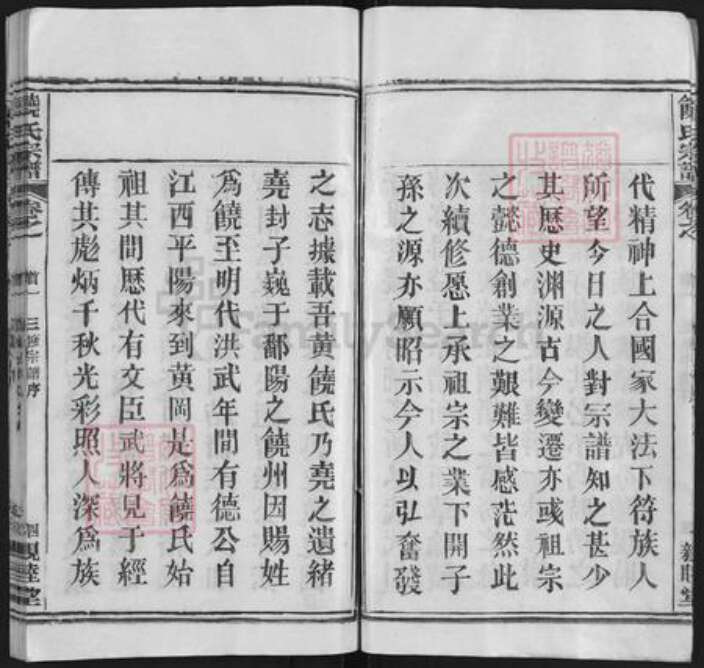 饒氏宗譜
代精神上合國家大法下符族人
所望今日之人對宗譜知之甚少
其歷史渊源古今變遷亦或祖宗
之懿德創業之艱難皆感茫然此
次續修愿上承祖宗之業下開子
孫之源亦願昭示今人以弘奮發
之志據載吾黄饒氏乃堯之遺緒
堯封子巍于鄱陽之饒州因賜姓
爲饒至明代洪武年間有德公自
江西平陽來到黄岡是爲饒氏始
祖其間歷代有文臣武將見于經
傳其彪炳千秋光彩照人深爲族
饒氏宗譜
卷之
三修宗譜序
親睦堂
FamilySearch